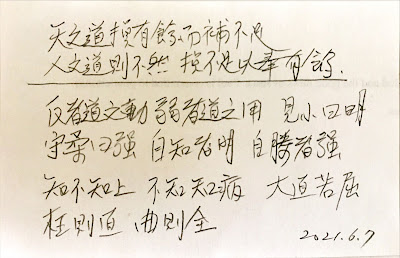 天之道損有餘而補不足
人之道則不然 損不足以奉有餘.
反者道之動 弱者道之用 見小曰明
守柔曰强 自知者明 自勝者强
知不知上 不知知病 大直若屈
枉則直 曲則全
2021.6.7